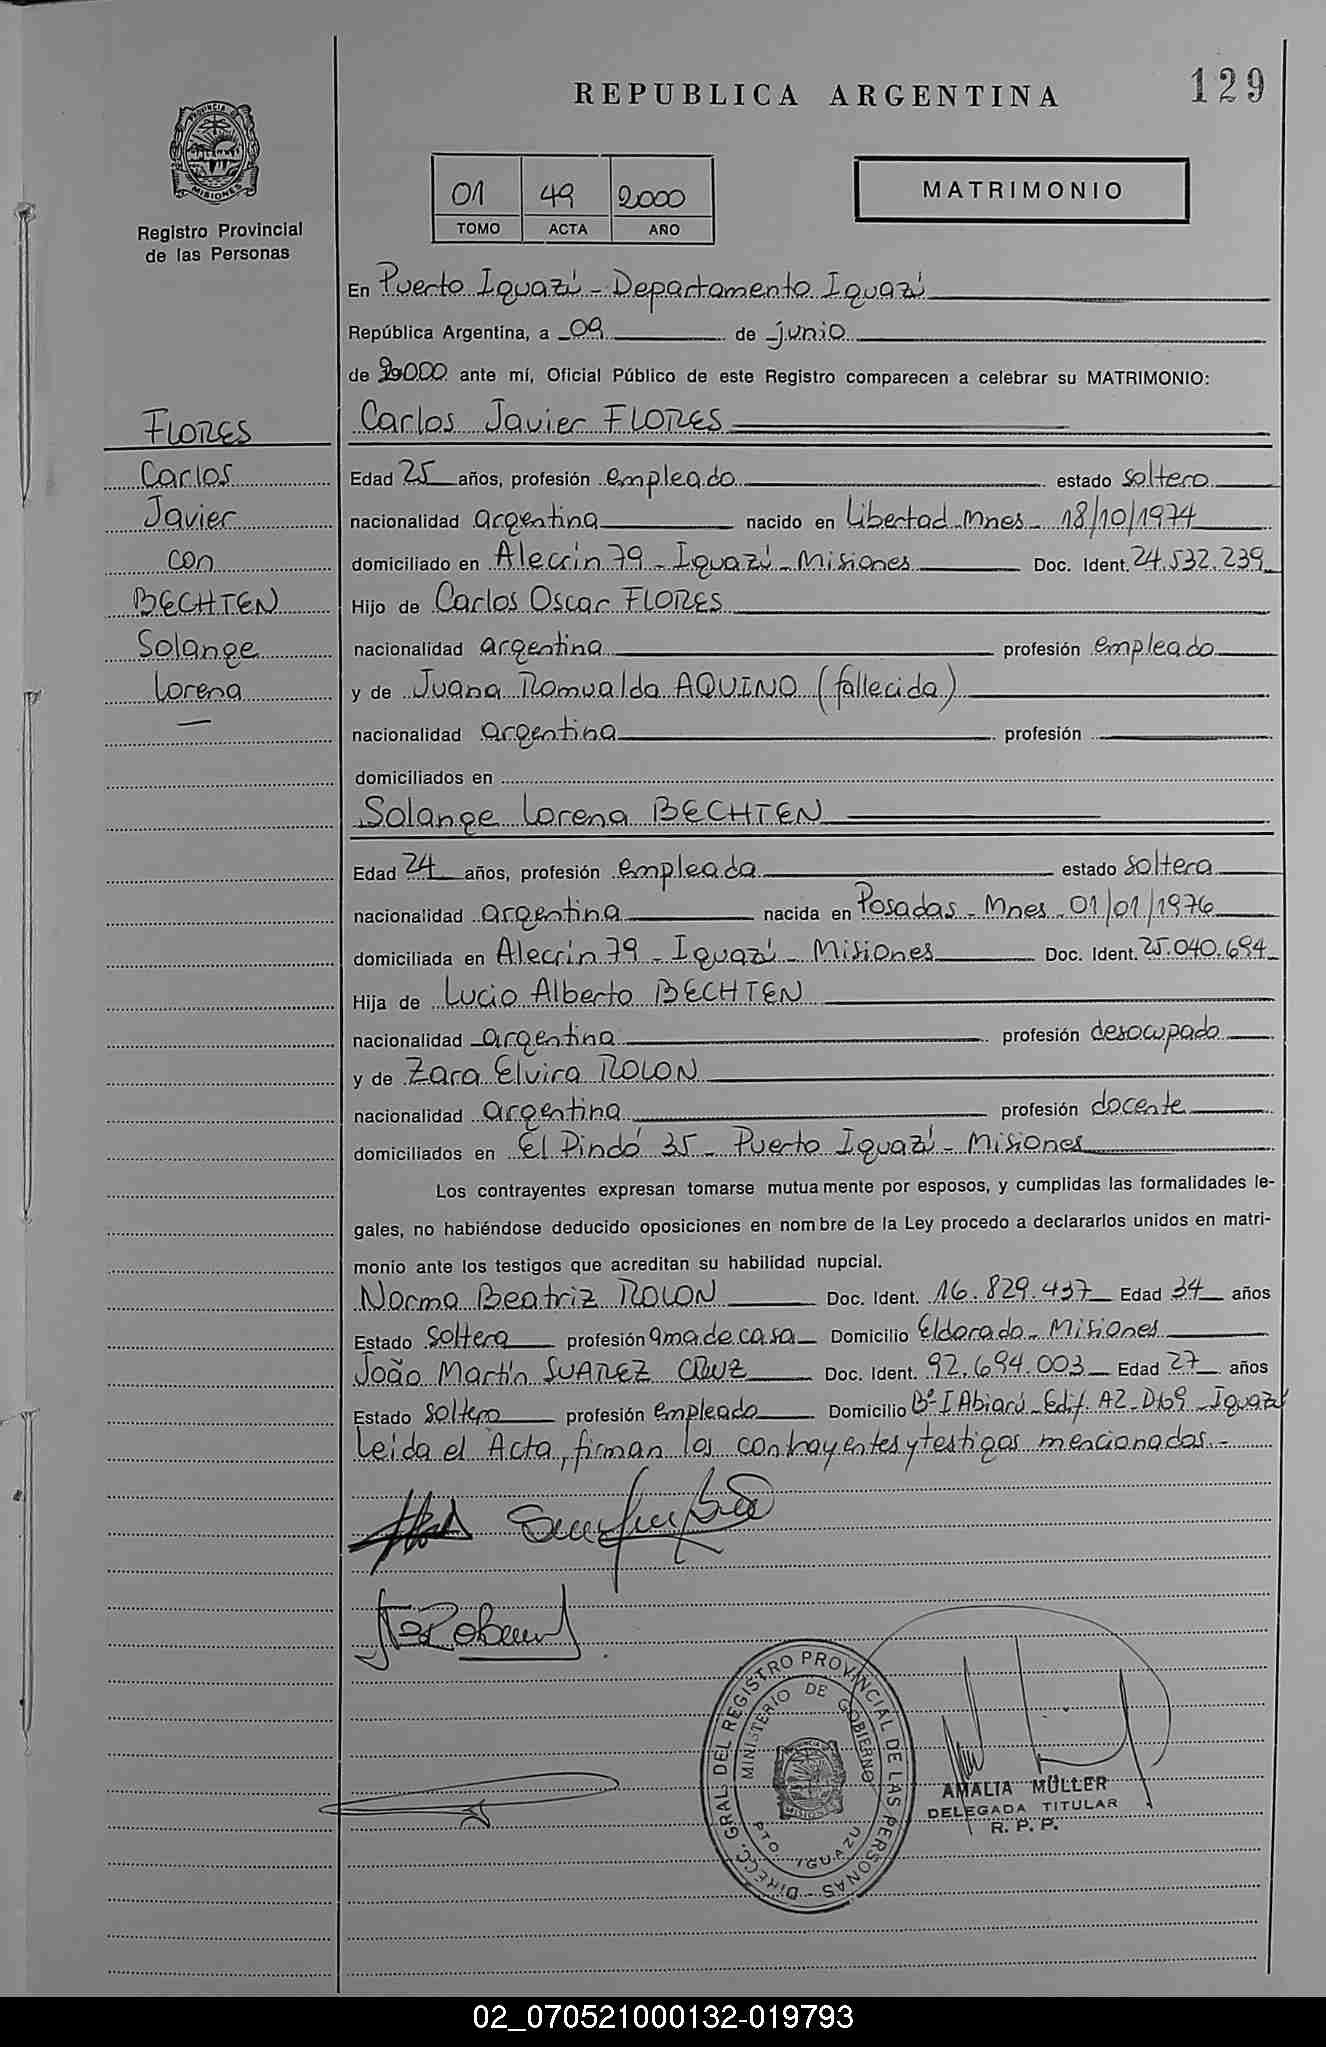 129
REPUBLICA ARGENTINA
PROVINCIA DE
MISIONES
Registro Provincial
de las Personas
01 49 2000
TOMO ACTA AÑO
MATRIMONIO
En Puerto Iguazú - Departamento Iguazú
República Argentina, a 09 de junio
de 2000 ante mí, Oficial Público de este Registro comparecen a celebrar su MATRIMONIO:
FLORES
Carlos
Javier
con
BECHTEN
Solange
Lorena
Carlos Javier FLORES
Edad 25 años, profesión empleado estado soltero
nacionalidad argentina nacido en Libertad Mnes - 18/10/1974
domiciliado en Alecrín 79 - Iguazú - Misiones Doc. Ident. 24.532.239
Hijo de Carlos Oscar FLORES
nacionalidad argentina profesión empleado
y de Juana Romualda AQUINO (fallecida)
nacionalidad argentina profesión
domiciliados en
Solange Lorena BECHTEN
Edad 24 años, profesión empleada estado soltera
nacionalidad argentina nacida en Posadas - Mnes - 01/01/1976
domiciliada en Alecrín 79 - Iguazú - Misiones Doc. Ident. 25.040.694
Hija de Lucio Alberto BECHTEN
nacionalidad argentina profesión desocupado
y de Zara Elvira ROLON
nacionalidad argentina profesión docente
domiciliados en El Pindó 35 - Puerto Iguazú - Misiones
Los contrayentes expresan tomarse mutuamente por esposos, y cumplidas las formalidades le-
gales, no habiéndose deducido oposiciones en nombre de la Ley procedo a declararlos unidos en matri-
monio ante los testigos que acreditan su habilidad nupcial.
Norma Beatriz ROLON Doc. Ident. 16.829.437 Edad 34 años
Estado soltera profesión ama de casa Domicilio Eldorado - Misiones
João Martín SUAREZ CRUZ Doc. Ident. 92.694.003 Edad 27 años
Estado soltero profesión empleado Domicilio Bº I Abiarú - Edif. A2 - Dto 9 - Iguazú
Leida el Acta, firman los contrayentes y testigos mencionados.-
DIRECC. GRAL. DEL REGISTRO PROVINCIAL DE LAS PERSONAS
MINISTERIO DE GOBIERNO
PTO. IGUAZU
AMALIA MÜLLER
DELEGADA TITULAR
R. P. P.
02_070521000132-019793